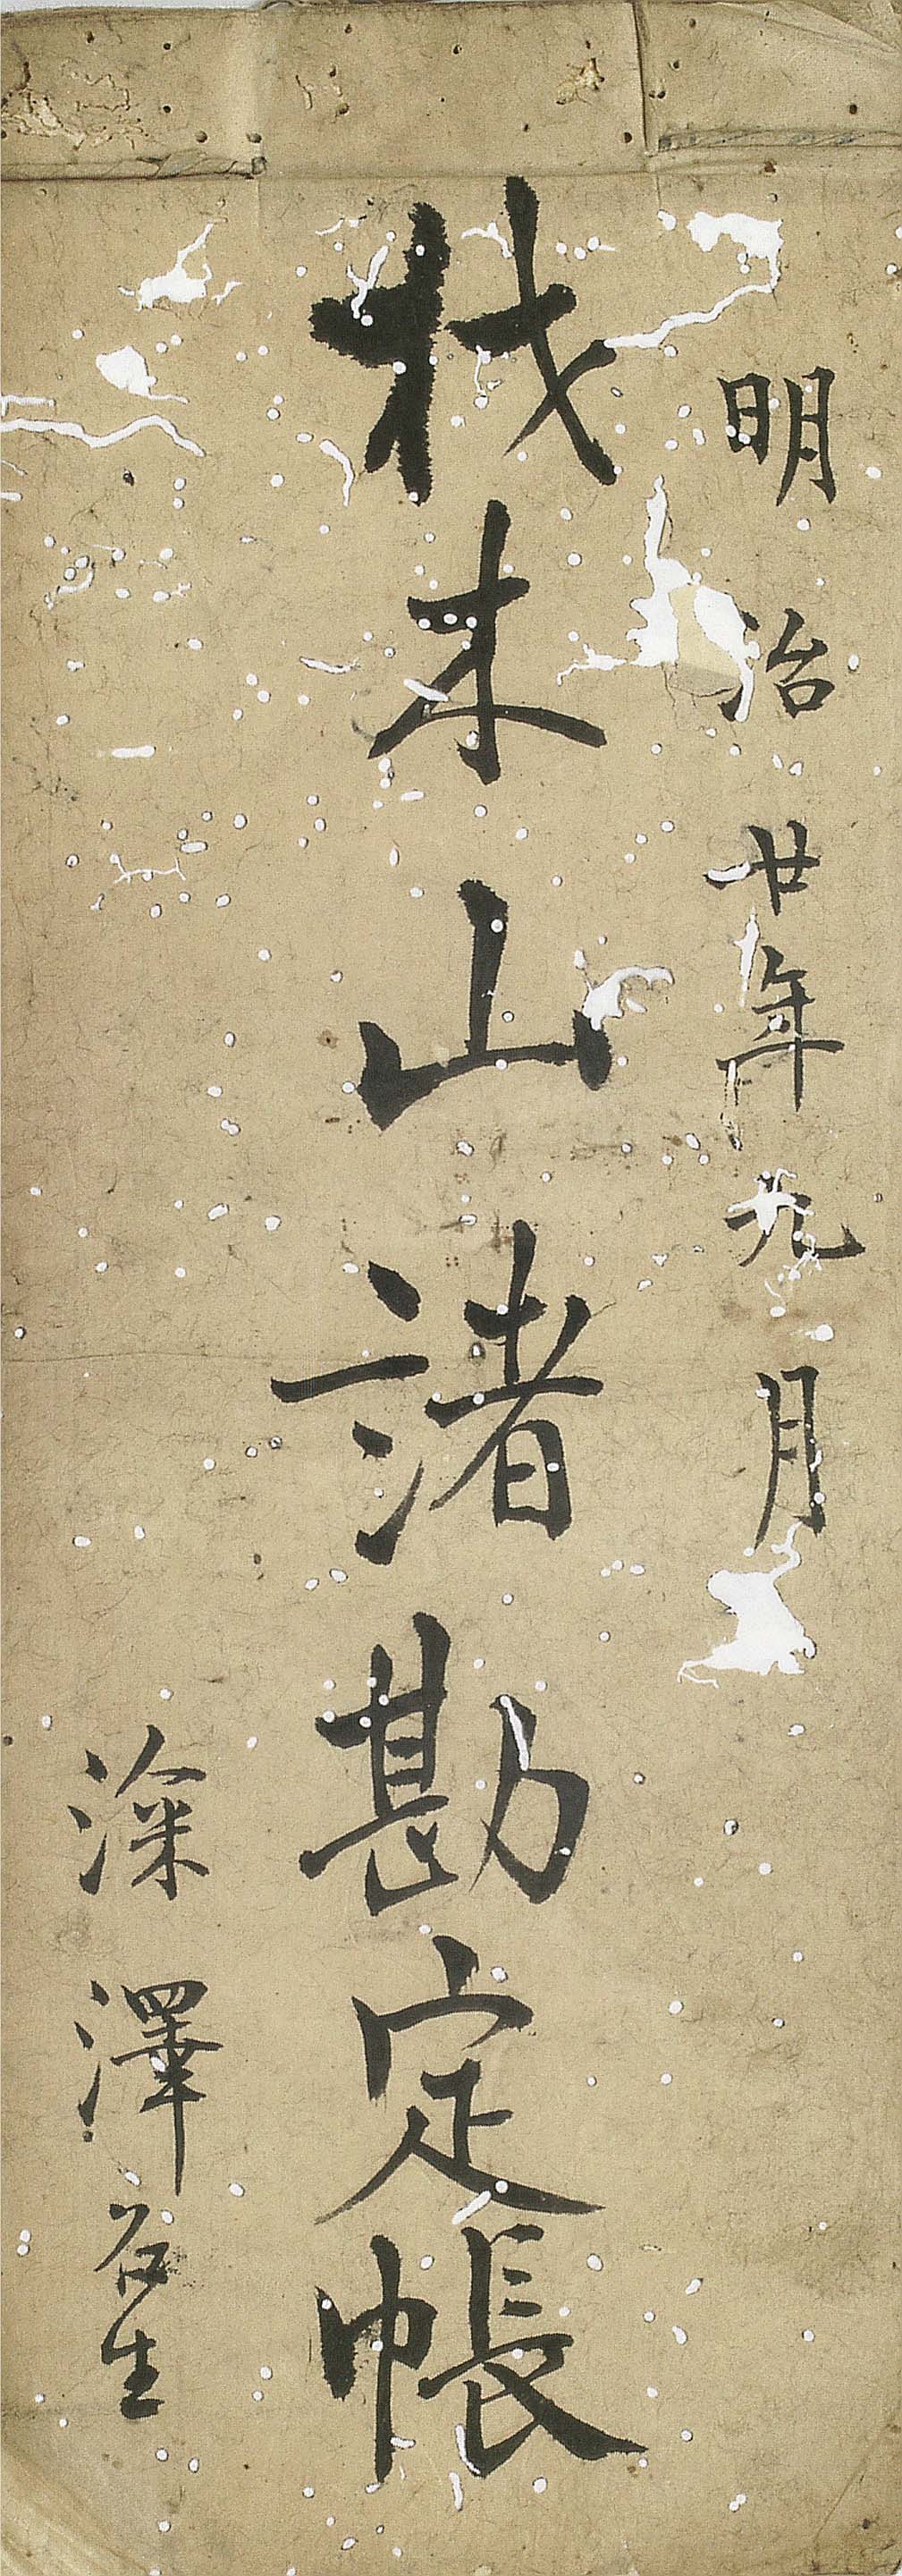 明治廿年九月
材木山諸勘定帳
深澤名生